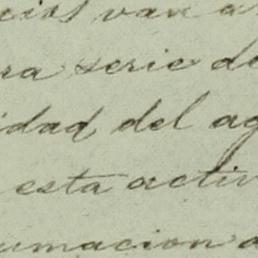 cios van a
ra serie de
idad del ag
esta activ
umacion a